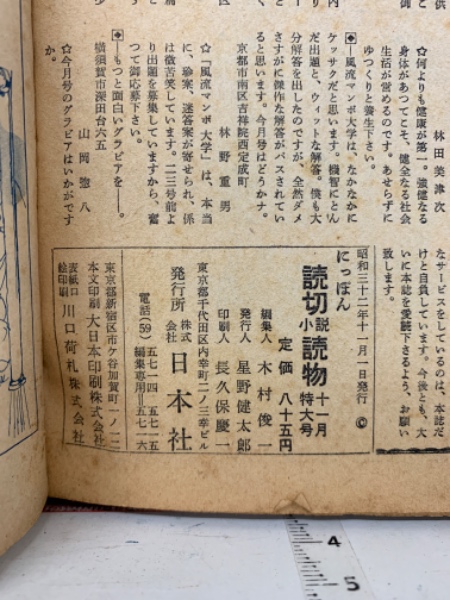 林田美津次
☆何よりも健康が第一。強健なる
身体があつてこそ、健全なる社会
生活が営めるのです。あせらずに
ゆつくりと養生下さい。
◆―風流マンボ大学は、なかなかに
ケッサクだと思います。機智にとん
だ出題と、ウィットな解答。僕も大
分解答を出したのですが、全然ダメ
さすがに傑作な解答がパスされてい
ると思います。今月号はどうかナ。
京都市南区吉祥院西定成町
林野重男
☆「風流マンボ大学」は、本当
に、珍案、迷答案が寄せられ、係
は微苦笑しています。二三号前よ
り出題を募集していますから、奮
つて御応募下さい。
◆―もつと面白いグラビアを――。
横須賀市深田台六五
山岡惣八
☆今月号のグラビアはいかがです
か。
なサービスをしているのは、本誌だ
けと自負しています。今後とも、大
いに本誌を愛読下さるよう、お願い
致します。
昭和三十二年十一月一日発行 ©
にっぽん
読切小説読物 十一月特大号
定価 八十五円
編集人 木村俊一
発行人 星野健太郎
印刷人 長久保慶一
東京都千代田区内幸町二ノ三幸ビル
発行所 株式会社 日本社
電話(59) 五七一四 五七一五
編集専用=五七二六
東京都新宿区市ケ谷加賀町一ノ一二
本文印刷 大日本印刷株式会社
表紙口絵印刷 川口荷札株式会社
4
5